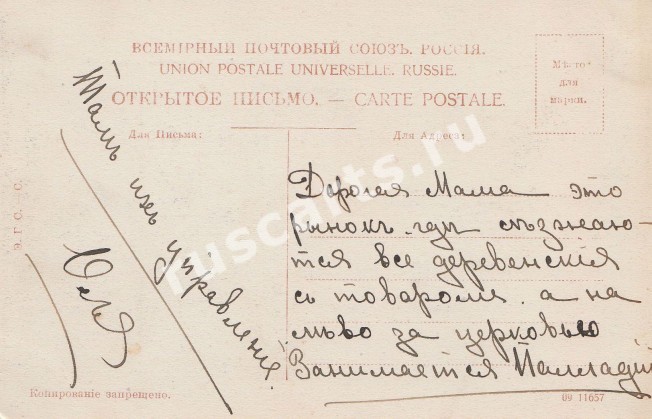 ВСЕМІРНЫЙ ПОЧТОВЫЙ СОЮЗЪ. РОССІЯ.
UNION POSTALE UNIVERSELLE. RUSSIE.
ОТКРЫТОЕ ПИСЬМО. — CARTE POSTALE.
Мѣсто
для
марки.
Для Письма:
Для Адреса:
Тамъ ихъ управленіе.
Дорогая Мама это
рынокъ гдѣ съѣзжаю-
тся все деревенскія
съ товаромъ. а на
лѣво за церковью
Занимается Палладій
Э. Г. С. — С.
Копированіе запрещено.
09 11657
ruscarts.ru